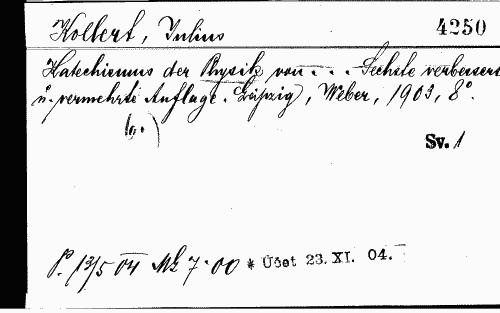 Kollert, Julius 4250
Katechismus der Physik von . . . Sechste verbessert
u. vermehrte Auflage. Leipzig, Weber, 1903, 8°.
Sv. 1
P. 13/5 04 Mk 7·00 * Účet 23. XI. 04.